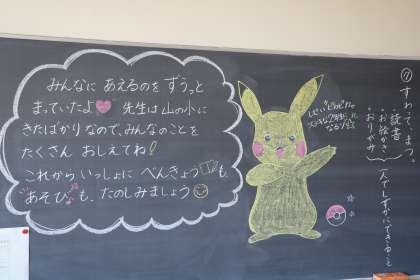 みんなに あえるのを ずうっと
まっていたよ 先生は山の小に
きたばかりなので、みんなのことを
たくさん おしえてね!
これから いっしょに べんきょうも、
あそびも、たのしみましょう
すわってまつ
・読書
・お絵かき
・おりがみ
一人でしずかにできること